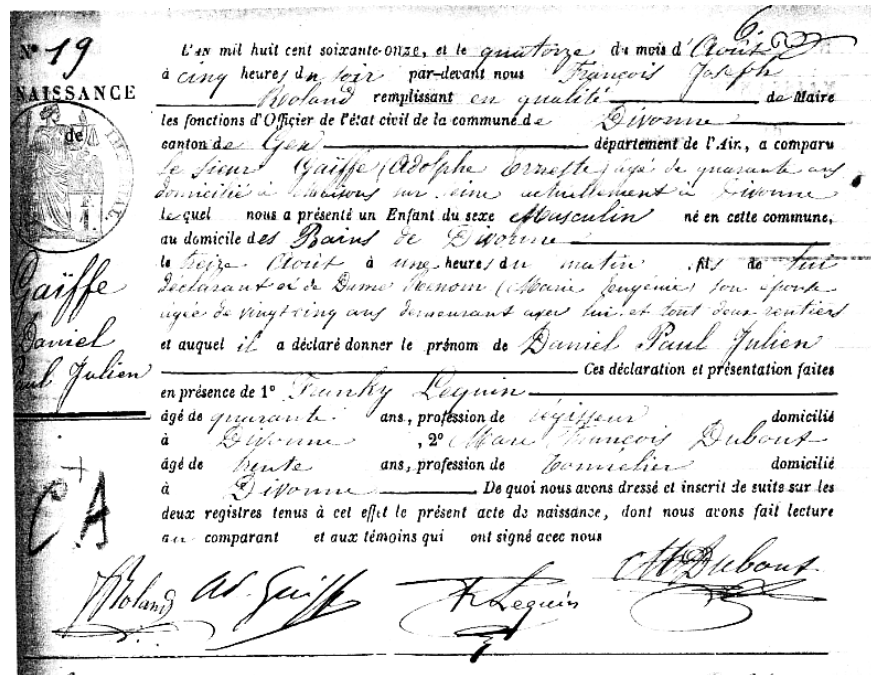 6
N° 19
NAISSANCE
de
Gaïffe
Daniel
Paul Julien
+
CA
L'AN mil huit cent soixante-onze, et le quatorze du mois d'Août
à cinq heures du soir par-devant nous François Joseph
Roland remplissant en qualité de Maire
les fonctions d'Officier de l'état civil de la commune de Divonne
canton de Gex département de l'Air., a comparu
le sieur Gaïffe (Adolphe Ernest) agé de quarante ans
domicilié à Maisons sur Seine actuellement à Divonne
lequel nous a présenté un Enfant du sexe Masculin né en cette commune,
au domicile des Bains de Divonne
le treize Août à une heures du matin fils de lui
déclarant et de Dame (Marie Eugénie) son épouse
agée de vingt cinq ans demeurant avec lui et tout deux rentiers
et auquel il a déclaré donner le prénom de Daniel Paul Julien
Ces déclaration et présentation faites
en présence de 1° Franky Lequin
âgé de quarante ans, profession de régisseur domicilié
à Divonne, 2° Marc François Dubout
âgé de trente ans, profession de domicilié
à Divonne De quoi nous avons dressé et inscrit de suite sur les
deux registres tenus à cet effet le présent acte de naissance, dont nous avons fait lecture
au comparant et aux témoins qui ont signé avec nous
Roland Ad. Gaiffe F. Lequin Dubout